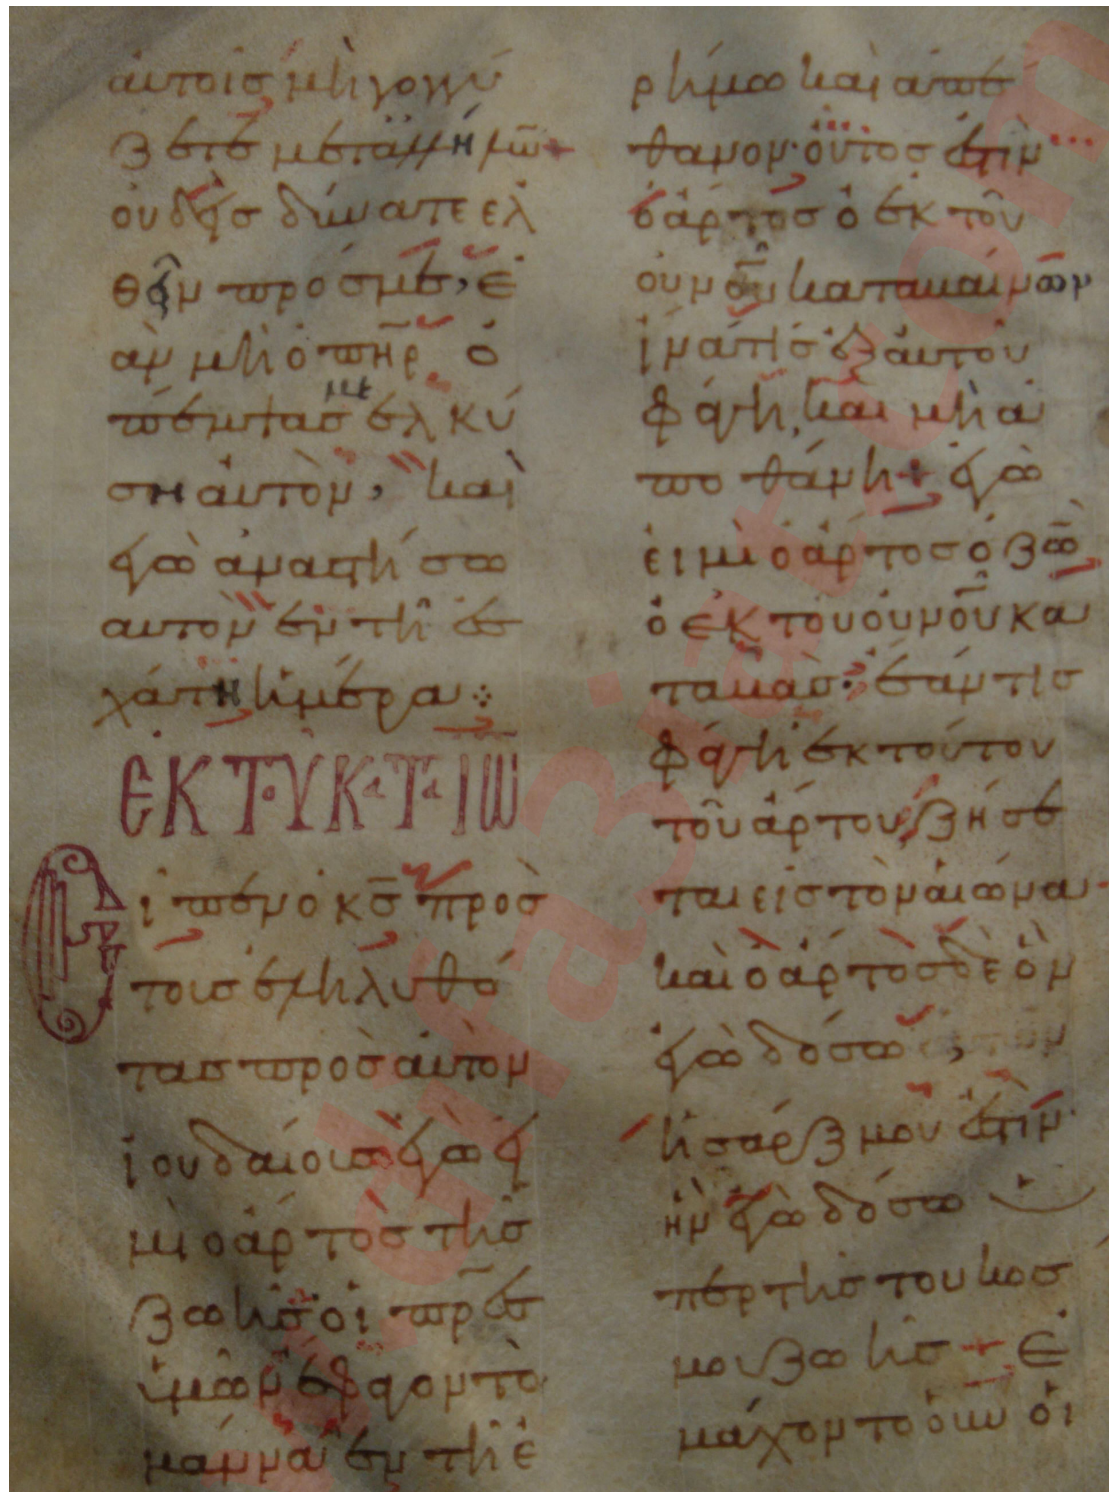 αυτοῖσ μὴ γογγύ
ζετε μετἀλλήλω̅ +
ουδεὶσ δύναται ελ
θεῖν πρόσ με, ἐ
ὰν μὴ ὁ π̅η̅ρ ὁ
πέμψασ με ἑλκύ
ση αυτὸν, καὶ
ἐγὼ ἀναστήσω
αυτὸν ἐν τῆ ἐσ
χάτη ἡμέρα ⁘
ἐΚ ΤΟΥ ΚΑΤΑ ΙΩ
Εἶπεν ὁ κ̅σ̅ πρὸσ
τουσ ἐληλυθό
τασ πρὸσ αὐτὸν
ἰουδαίουσ ἐγὼ εἰ
μι ὁ άρτοσ τῆσ
ζωῆσ· οἱ πρ̅εσ
ὑμῶν ἔφαγον τὸ
μάννα ἐν τῆ ἐ
ρήμω καὶ ἀπέ
θανον· οὗτοσ ἐστὶν
ὁ άρτοσ ὁ ἐκ τοῦ
ουνοῦ καταβαίνων
ἵνα τίσ ἐξ αυτου
φάγη, και μὴ ἀ
ποθάνη + ἐγώ
ειμι ὁ άρτοσ ὁ ζω̅
ὁ ἐκ του ουνοῦ κα
ταβάσ· ἐάν τισ
φάγη ἐκ τούτου
τοῦ άρτου, ζήσε
ται εισ τὸν αἰῶνα
καὶ ὁ άρτοσ δὲ ὃν
ἐγὼ δώσω,
ἡ σάρξ μου ἐστὶν
ἣν ἐγὼ δώσω
ὑπέρ τῆσ του κοσ
μου ζωῆσ + Ἐ
μάχοντο οὖν οἱ